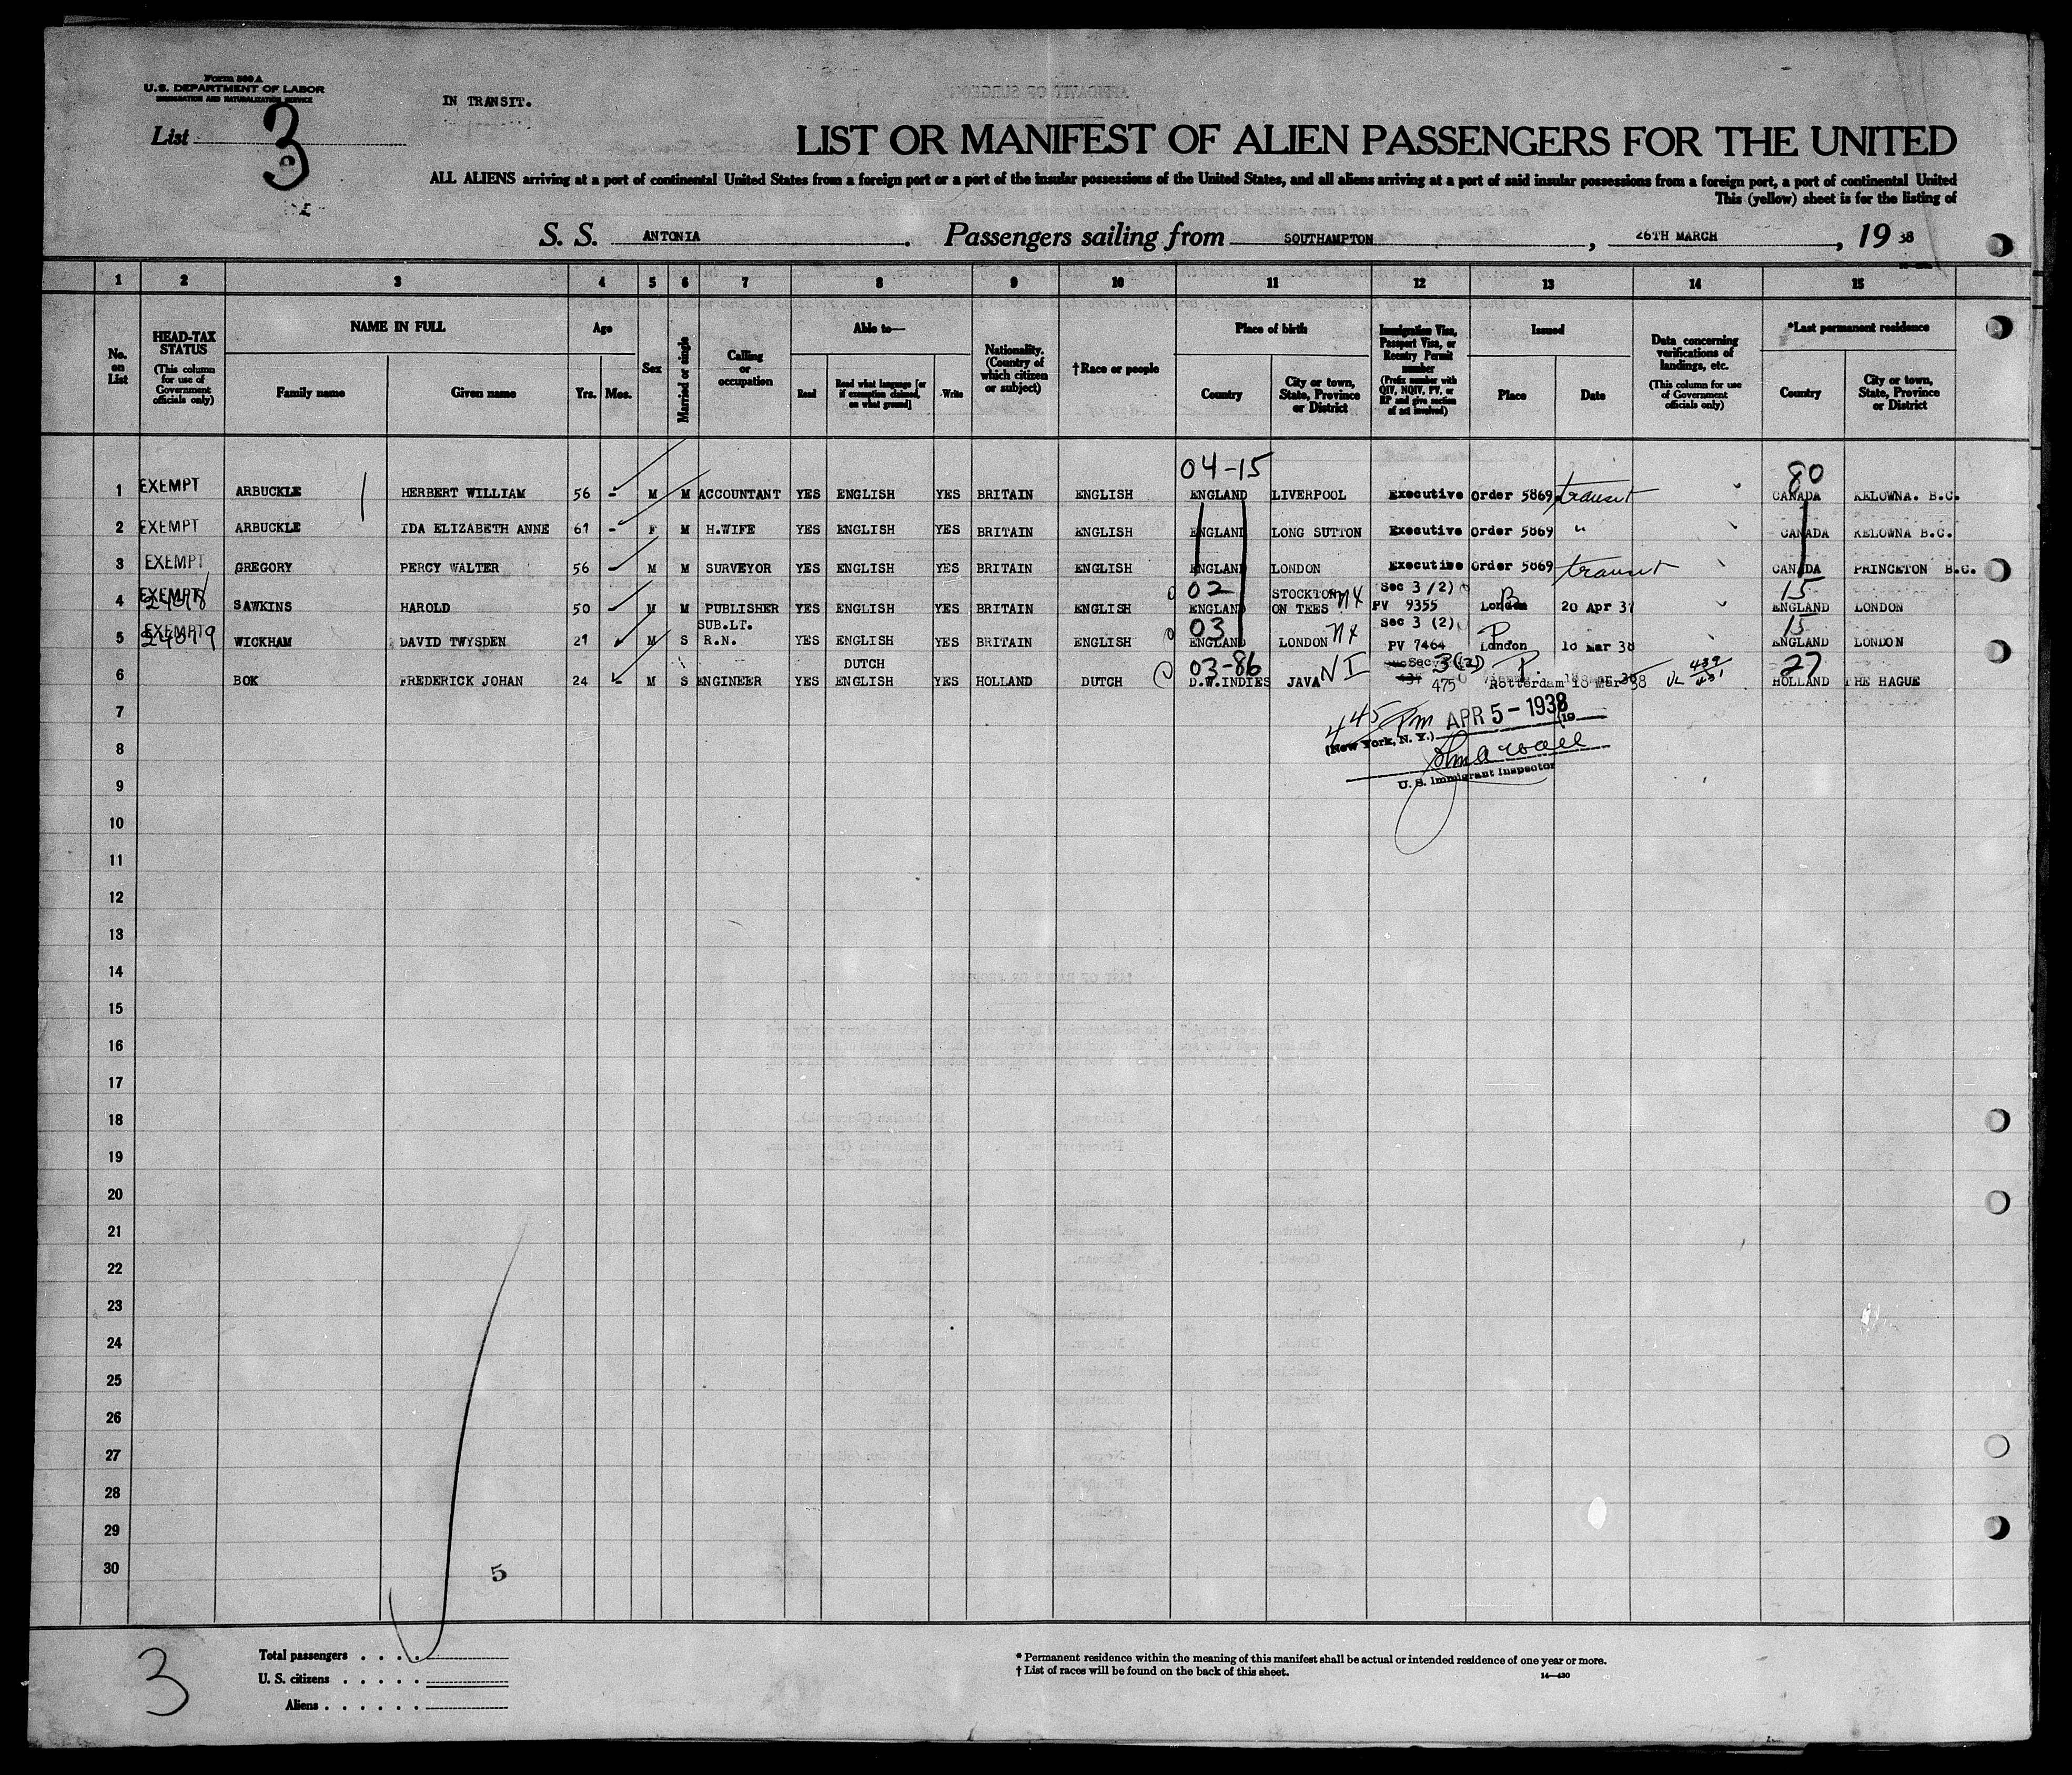 Form 500 A
U.S. DEPARTMENT OF LABOR
IMMIGRATION AND NATURALIZATION SERVICE
IN TRANSIT.
List 3
LIST OR MANIFEST OF ALIEN PASSENGERS FOR THE UNITED
ALL ALIENS arriving at a port of continental United States from a foreign port or a port of the insular possessions of the United States, and all aliens arriving at a port of said insular possessions from a foreign port, a port of continental United
This (yellow) sheet is for the listing of
S. S. ANTONIA. Passengers sailing from SOUTHAMPTON, 26TH MARCH, 19 38
1 2 3 4 5 6 7 8 9 10 11 12 13 14 15
No. on List
HEAD-TAX STATUS (This column for use of Government officials only)
NAME IN FULL
Family name
Given name
Age
Yrs. Mos.
Sex
Married or single
Calling or occupation
Able to—
Read
Read what language [or if exemption claimed, on what ground]
Write
Nationality. (Country of which citizen or subject)
†Race or people
Place of birth
Country
City or town, State, Province or District
Immigration Visa, Passport Visa, or Reentry Permit number (Prefix number with QIV, NQIV, PV, or RP and give section of act involved)
Issued
Place
Date
Data concerning verifications of landings, etc. (This column for use of Government officials only)
*Last permanent residence
Country
City or town, State, Province or District
04-15 80
1 EXEMPT ARBUCKLE HERBERT WILLIAM 56 - M M ACCOUNTANT YES ENGLISH YES BRITAIN ENGLISH ENGLAND LIVERPOOL Executive Order 5869 transit CANADA KELOWNA. B.C.
2 EXEMPT ARBUCKLE IDA ELIZABETH ANNE 61 - F M H.WIFE YES ENGLISH YES BRITAIN ENGLISH ENGLAND LONG SUTTON Executive Order 5869 " CANADA KELOWNA B.C.
3 EXEMPT GREGORY PERCY WALTER 56 - M M SURVEYOR YES ENGLISH YES BRITAIN ENGLISH ENGLAND LONDON Executive Order 5869 transit CANADA PRINCETON B.C.
02 STOCKTON Sec 3 (2) 15
4 EXEMPT SAWKINS HAROLD 50 M M PUBLISHER YES ENGLISH YES BRITAIN ENGLISH ENGLAND ON TEES PV 9355 London 20 Apr 37 ENGLAND LONDON
SUB.LT. 03 Sec 3 (2) P 15
5 EXEMPT WICKHAM DAVID TWYSDEN 21 M S R.N. YES ENGLISH YES BRITAIN ENGLISH ENGLAND LONDON PV 7464 London 10 Mar 38 ENGLAND LONDON
DUTCH 03-86 NI Sec 3(2) P. 439 27
6 BOK FREDERICK JOHAN 24 - M S ENGINEER YES ENGLISH YES HOLLAND DUTCH D.W.INDIES JAVA 475 Rotterdam 18 Mar 38 431 HOLLAND THE HAGUE
7
445 Pm APR 5 - 1938
(New York, N. Y.) 19
8
U. S. Immigrant Inspector
9
10
11
12
13
14
15
16
17
18
19
20
21
22
23
24
25
26
27
28
29
30
5
3
Total passengers . . . .
U. S. citizens . . . . .
Aliens . . . . . .
* Permanent residence within the meaning of this manifest shall be actual or intended residence of one year or more.
† List of races will be found on the back of this sheet.
14—430